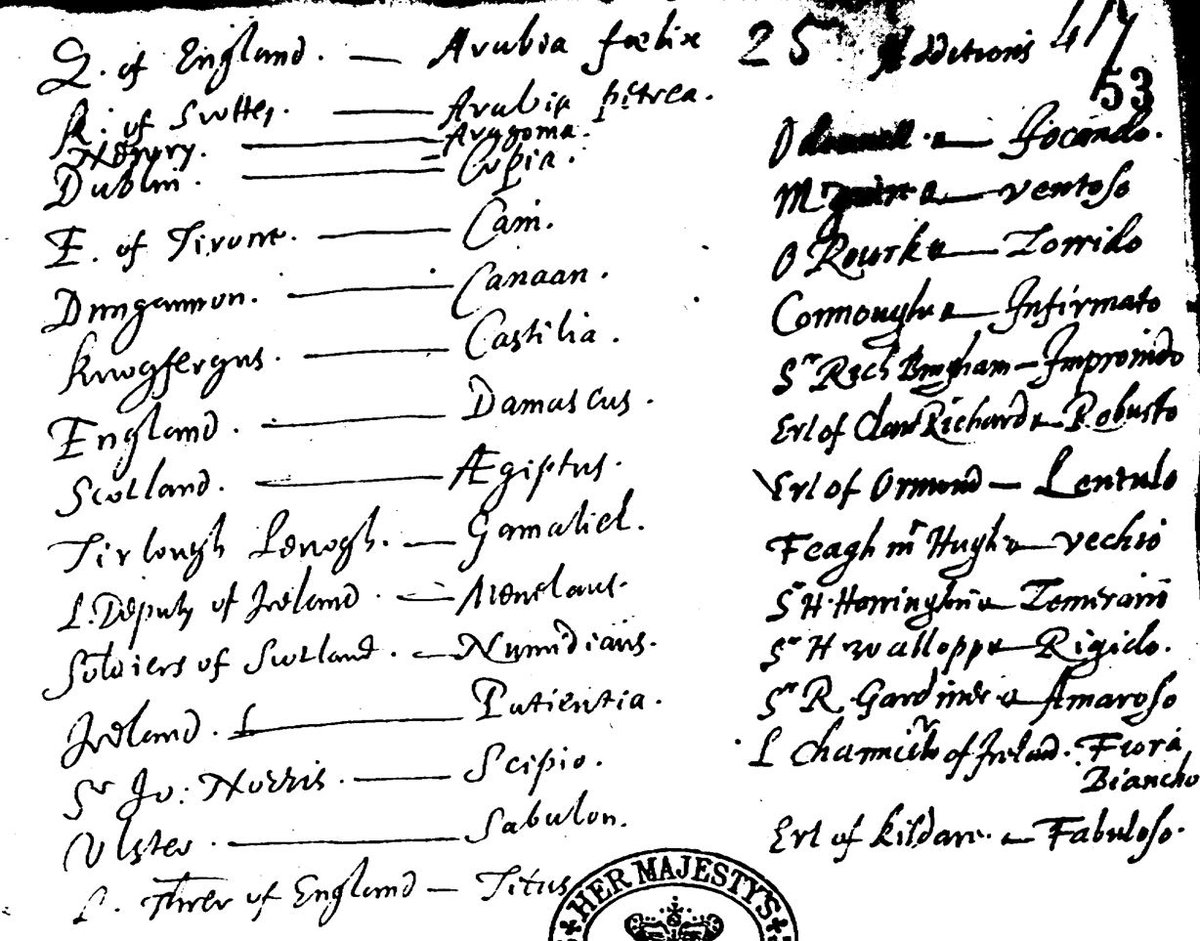 Q. of England. — Arabia fœlix
K. of Scottes. — Arabia petrea.
Newry. — Arragoma.
Dublin. — Copia.
E. of Tirone. — Cain.
Dungannon. — Canaan.
Knogfergus. — Castilia.
England. — Damascus.
Scotland. — Ægiptus.
Tirlough Lenogh. — Gamaliel.
L. Deputy of Ireland. — Menelaus.
Soldiers of Scotland. — Numidians.
Ireland. — Patientia.
Sr Jo: Norris. — Scipio.
Ulster. — Sabulon.
L. Threr of England — Titus
25 Additions 417
53
Odonnell. — Jocondo.
Mcguire — ventoso
O Rourke — Torrido
Connought — Infirmato
Sr Rich Bingham — Improvido
Erl of ClanRichard — Robusto
Erl of Ormund — Lentulo
Feagh mc Hugh — vechio
Sr H. Harrington — Temerario
Sr H wallopp — Rigido.
Sr R. Gardiner — Amaroso
L of Ireland. Fiora
Biancho
Erl of kildare. — Fabuloso.
HER MAJESTY'S